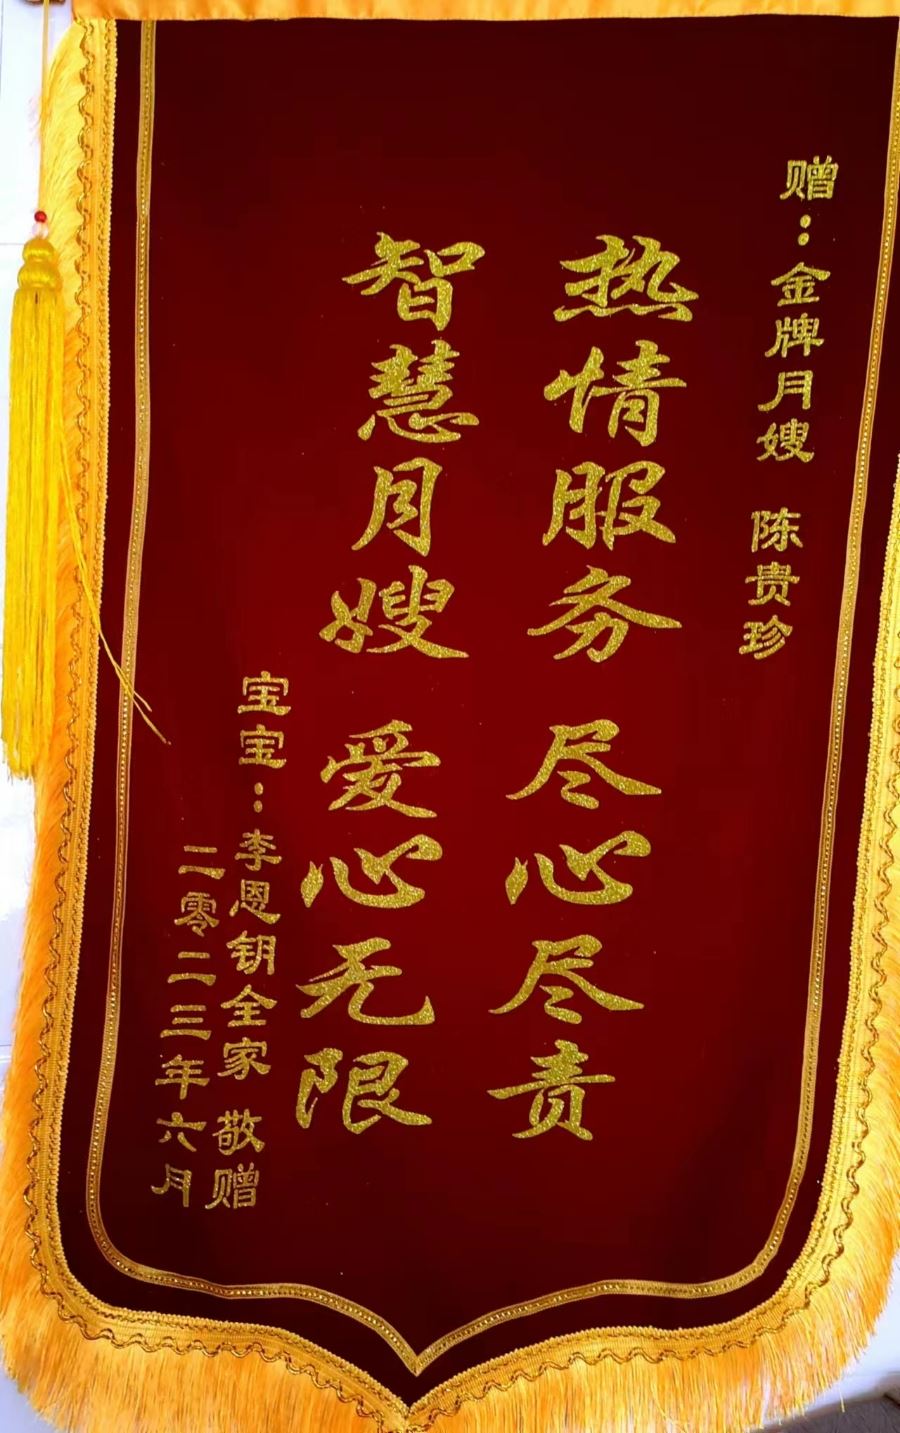 赠：金牌月嫂 陈贵珍
热情服务 尽心尽责
智慧月嫂 爱心无限
宝宝：李恩钥全家 敬赠
二零二三年六月